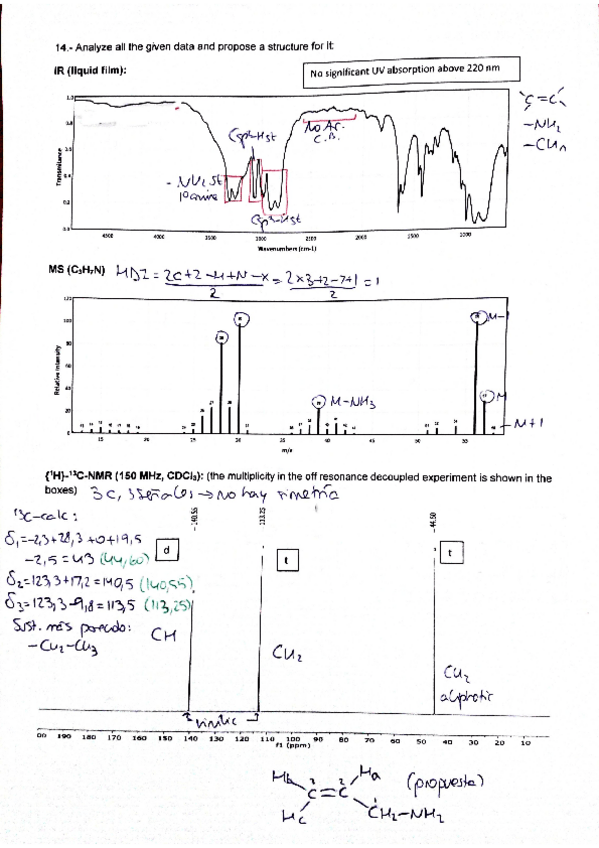 14.- Analyze all the given data and propose a structure for it
IR (liquid film):
No significant UV absorption above 220 nm
C=C
-NH2
-CH2
Csp²-Hst
No Ar.
C.B.
- NH2 st
1º amine
Csp³-Hst
Transmitance
4500 4000 3500 3000 2500 2000 1500 1000
Wavenumbers (cm-1)
MS (C₃H₇N) HDI = 2C+2-H+N-X / 2 = 2x3+2-7+1 / 2 = 1
120
100
80
60
40
20
0
Relative Intensity
M-1
M
M-NH3
M+1
15 20 25 30 35 40 45 50 55
m/z
{¹H}-¹³C-NMR (150 MHz, CDCl₃): (the multiplicity in the off resonance decoupled experiment is shown in the
boxes) 3C, 3 señales → no hay simetría
-140.55
113.25
-44.50
¹³C-calc:
δ1=-2,3+28,3+0+19,5
-2,5=43 (44,60)
δ2=123,3+17,2=140,5 (140,55)
δ3=123,3-9,8=113,5 (113,25)
Sust. más parecido:
-CH2-CH3
d
t
t
CH
CH2
CH2
aliphatic
vinilic
00 190 180 170 160 150 140 130 120 110 100 90 80 70 60 50 40 30 20 10
f1 (ppm)
Hb Ha (propuesta)
3 2
C=C
Hc CH2-NH2